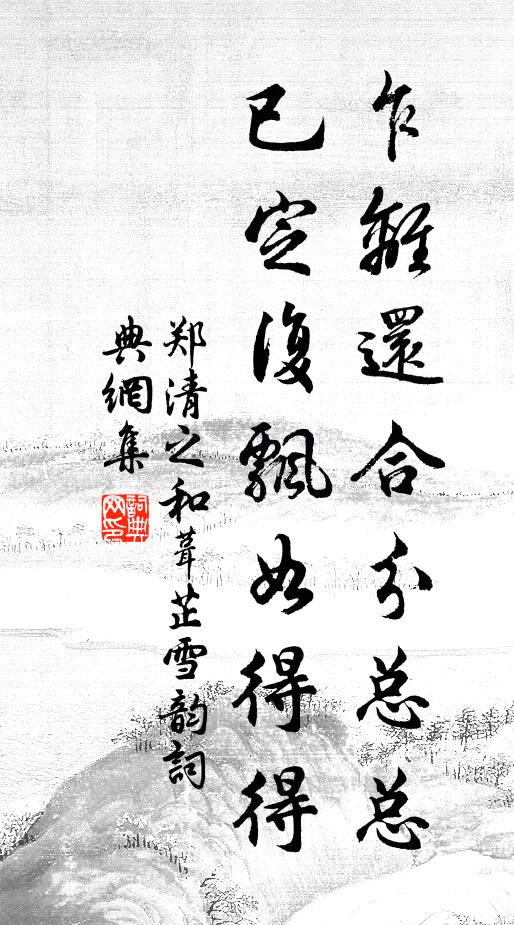 乍離還合分总总
已定復飄如得得
郑清之和葺芷雪韵詞
典網集
詞典网印